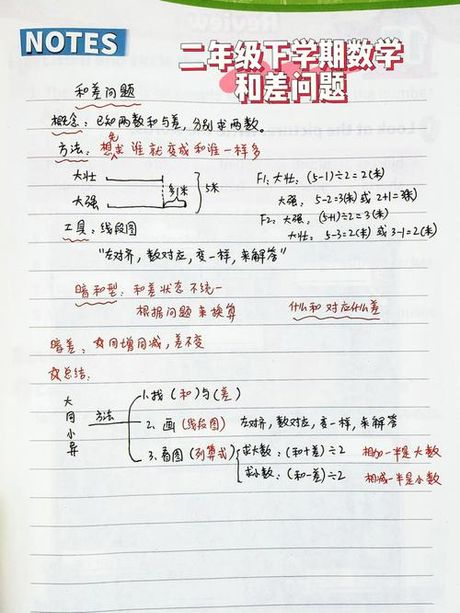 NOTES
二年级下学期数学
和差问题
和差问题
概念：已知两数和与差，分别求两数。
方法：想先求谁就变成和谁一样多
大壮
大强 多1米 5米
F1：大壮：(5-1)÷2=2(米)
大强：5-2=3(米) 或 2+1=3(米)
F2：大强：(5+1)÷2=3(米)
大壮：5-3=2(米) 或 3-1=2(米)
工具：线段图
“左对齐，数对应，变一样，来解答”
暗和型：和差状态不统一
根据问题来换算 什么和对应什么差
暗差：同增同减，差不变
总结：
大同小异 方法
1.找(和)与(差)
2.画(线段图) 左对齐，数对应，变一样，来解答
3.看图(列算式) 求大数：(和+差)÷2 相加一半是大数
求小数：(和-差)÷2 相减一半是小数